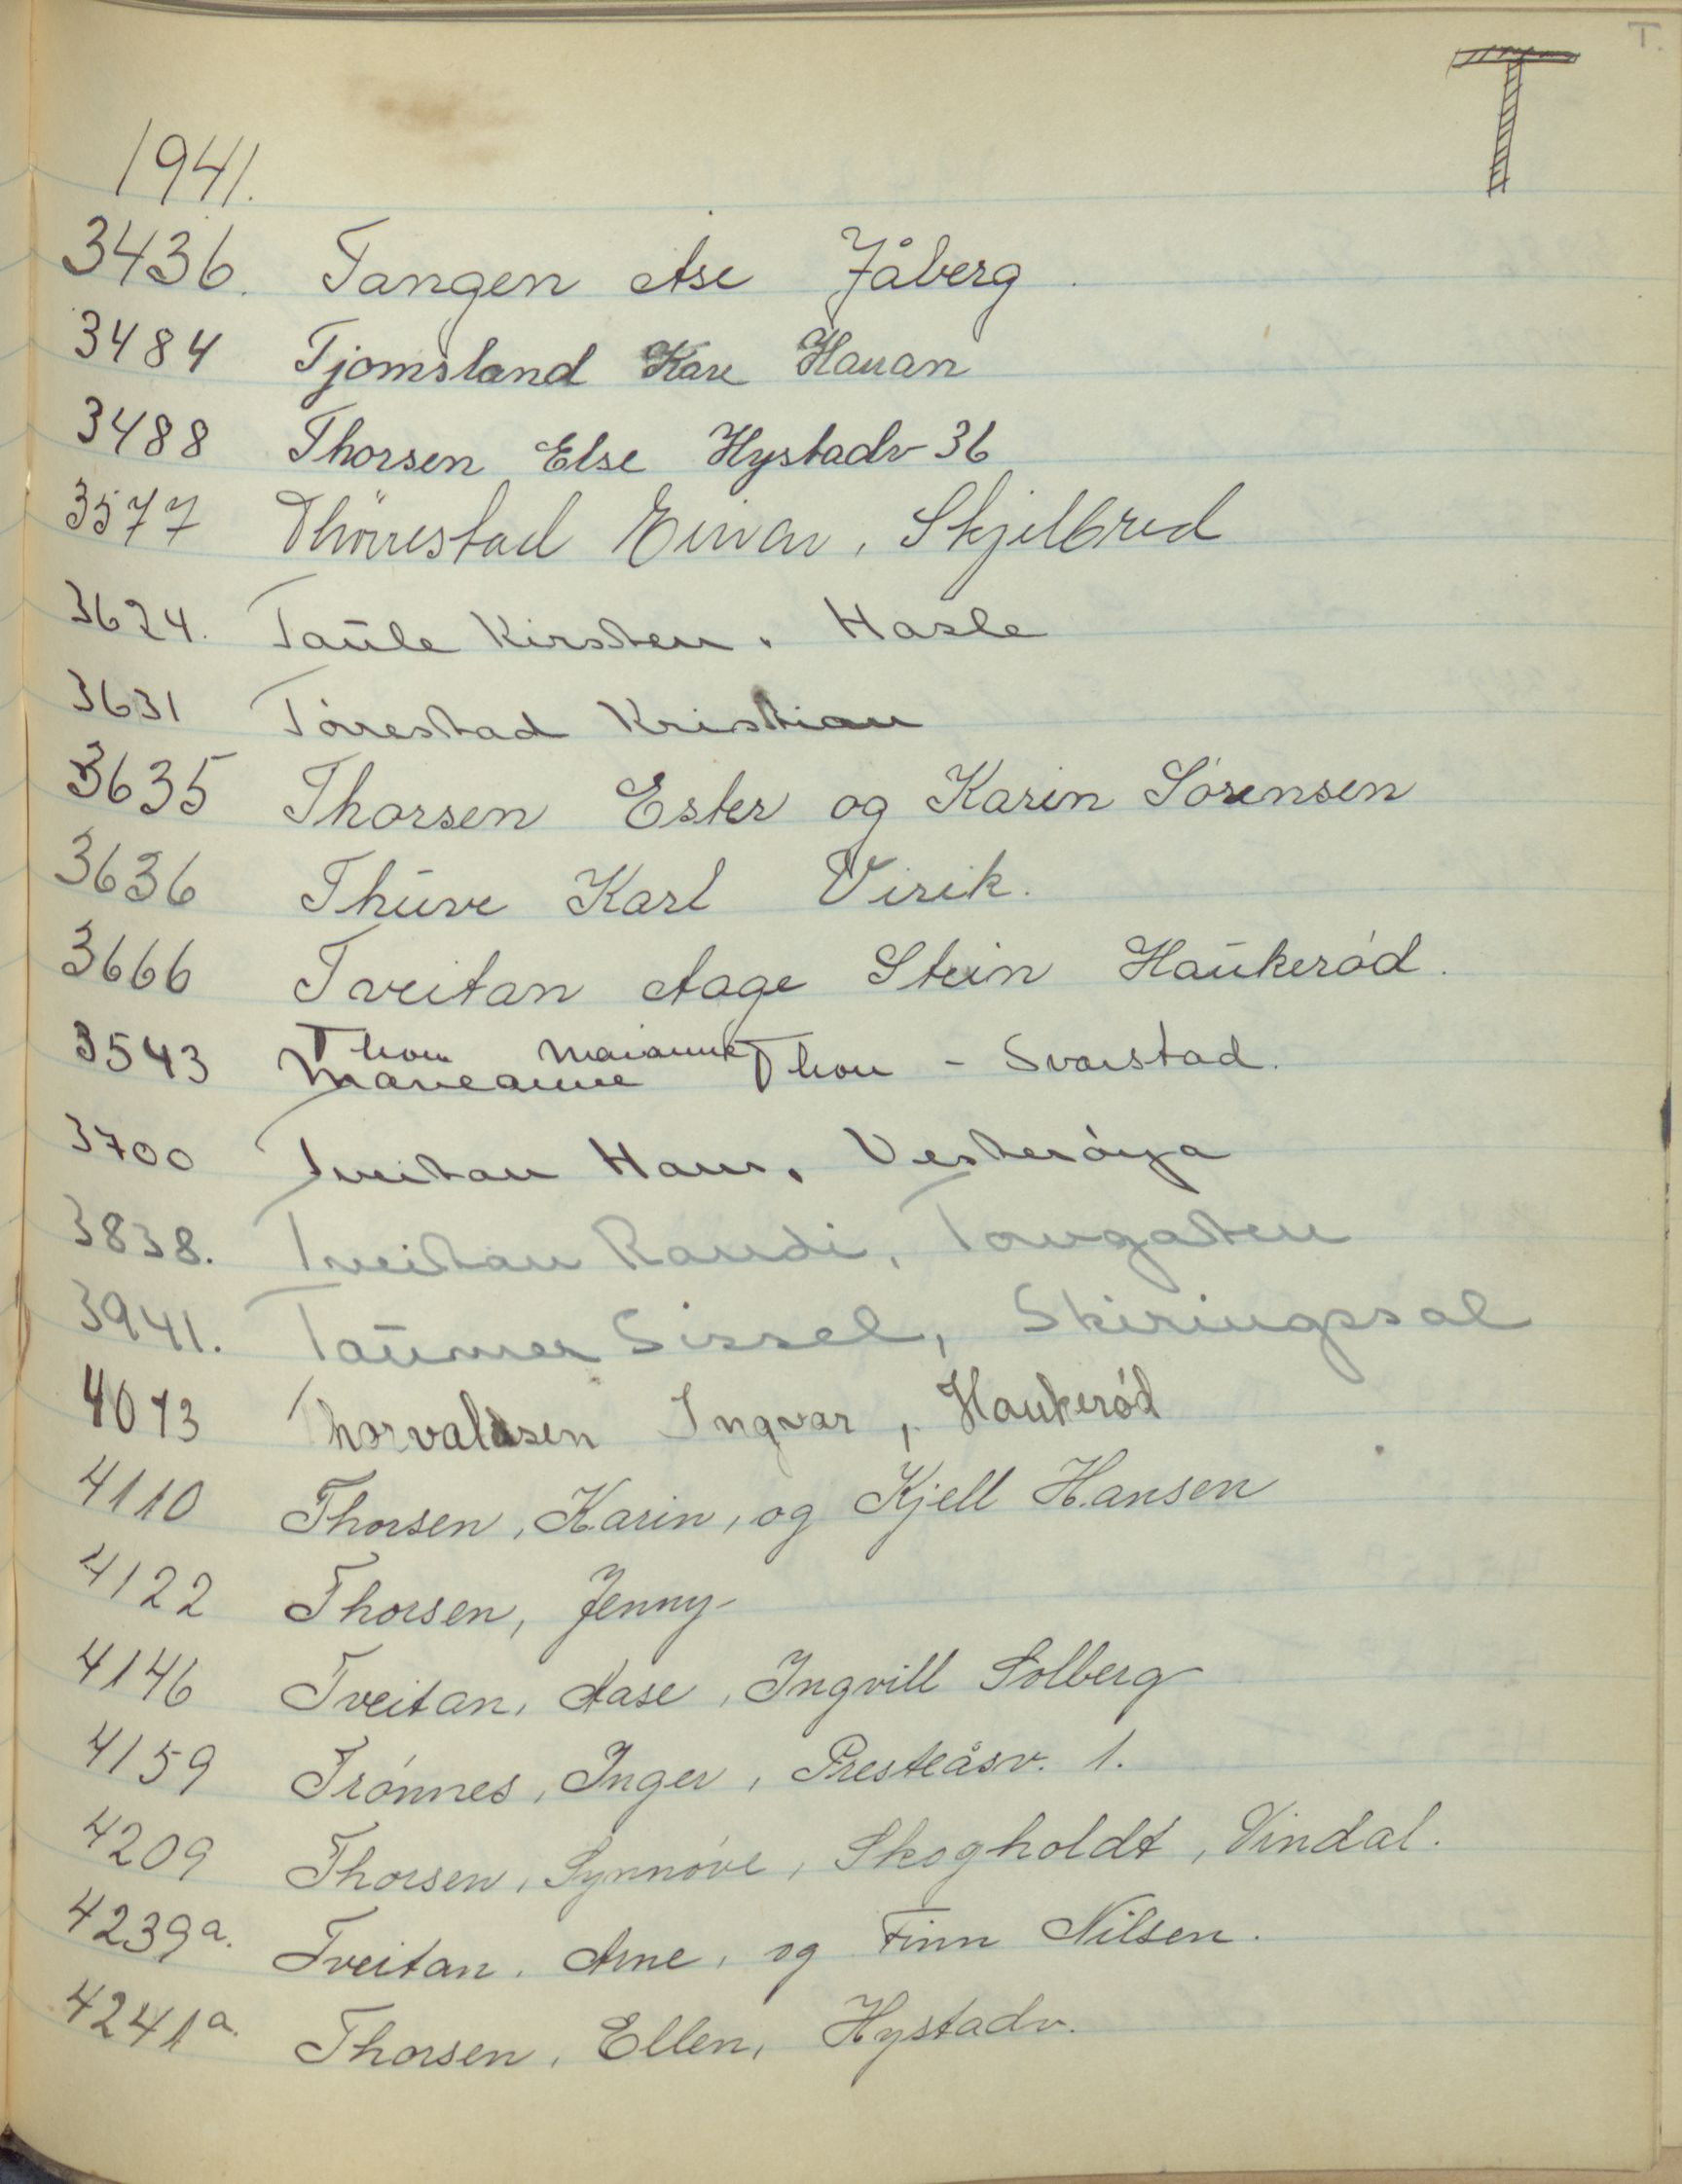 T.
T
1941.
3436. Tangen Åse Jåberg.
3484 Tjomsland Kare Hauan
3488 Thorsen Else Hystadv 36
3577 Thörrestad Einar, Skjelbred
3624. Taule Kirsten. Hasle
3631 Tórrestad Kristian
3635 Thorsen Ester og Karin Sórensen
3636 Thuve Karl Virik.
3666 Tveitan Aage Stein Haukeród.
Thon Marianne
3543 Marieanne Thon - Svarstad.
3700 Tveitan Hans. Vesteróya
3838. Tveitan Randi, Tongaten
3941. Taumer Sissel, Skiringssal
4073 Thorvaldsen Ingvar, Haukeród
4110 Thorsen, Karin, og Kjell Hansen
4122 Thorsen, Jenny
4146 Tveitan, Aase, Ingvill Solberg
4159 Trónnes, Inger, Presteåsv. 1.
4209 Thorsen, Synnóve, Skogholdt, Vindal.
4239a. Tveitan. Arne, og Finn Nilsen.
4241a. Thorsen, Ellen, Hystadv.